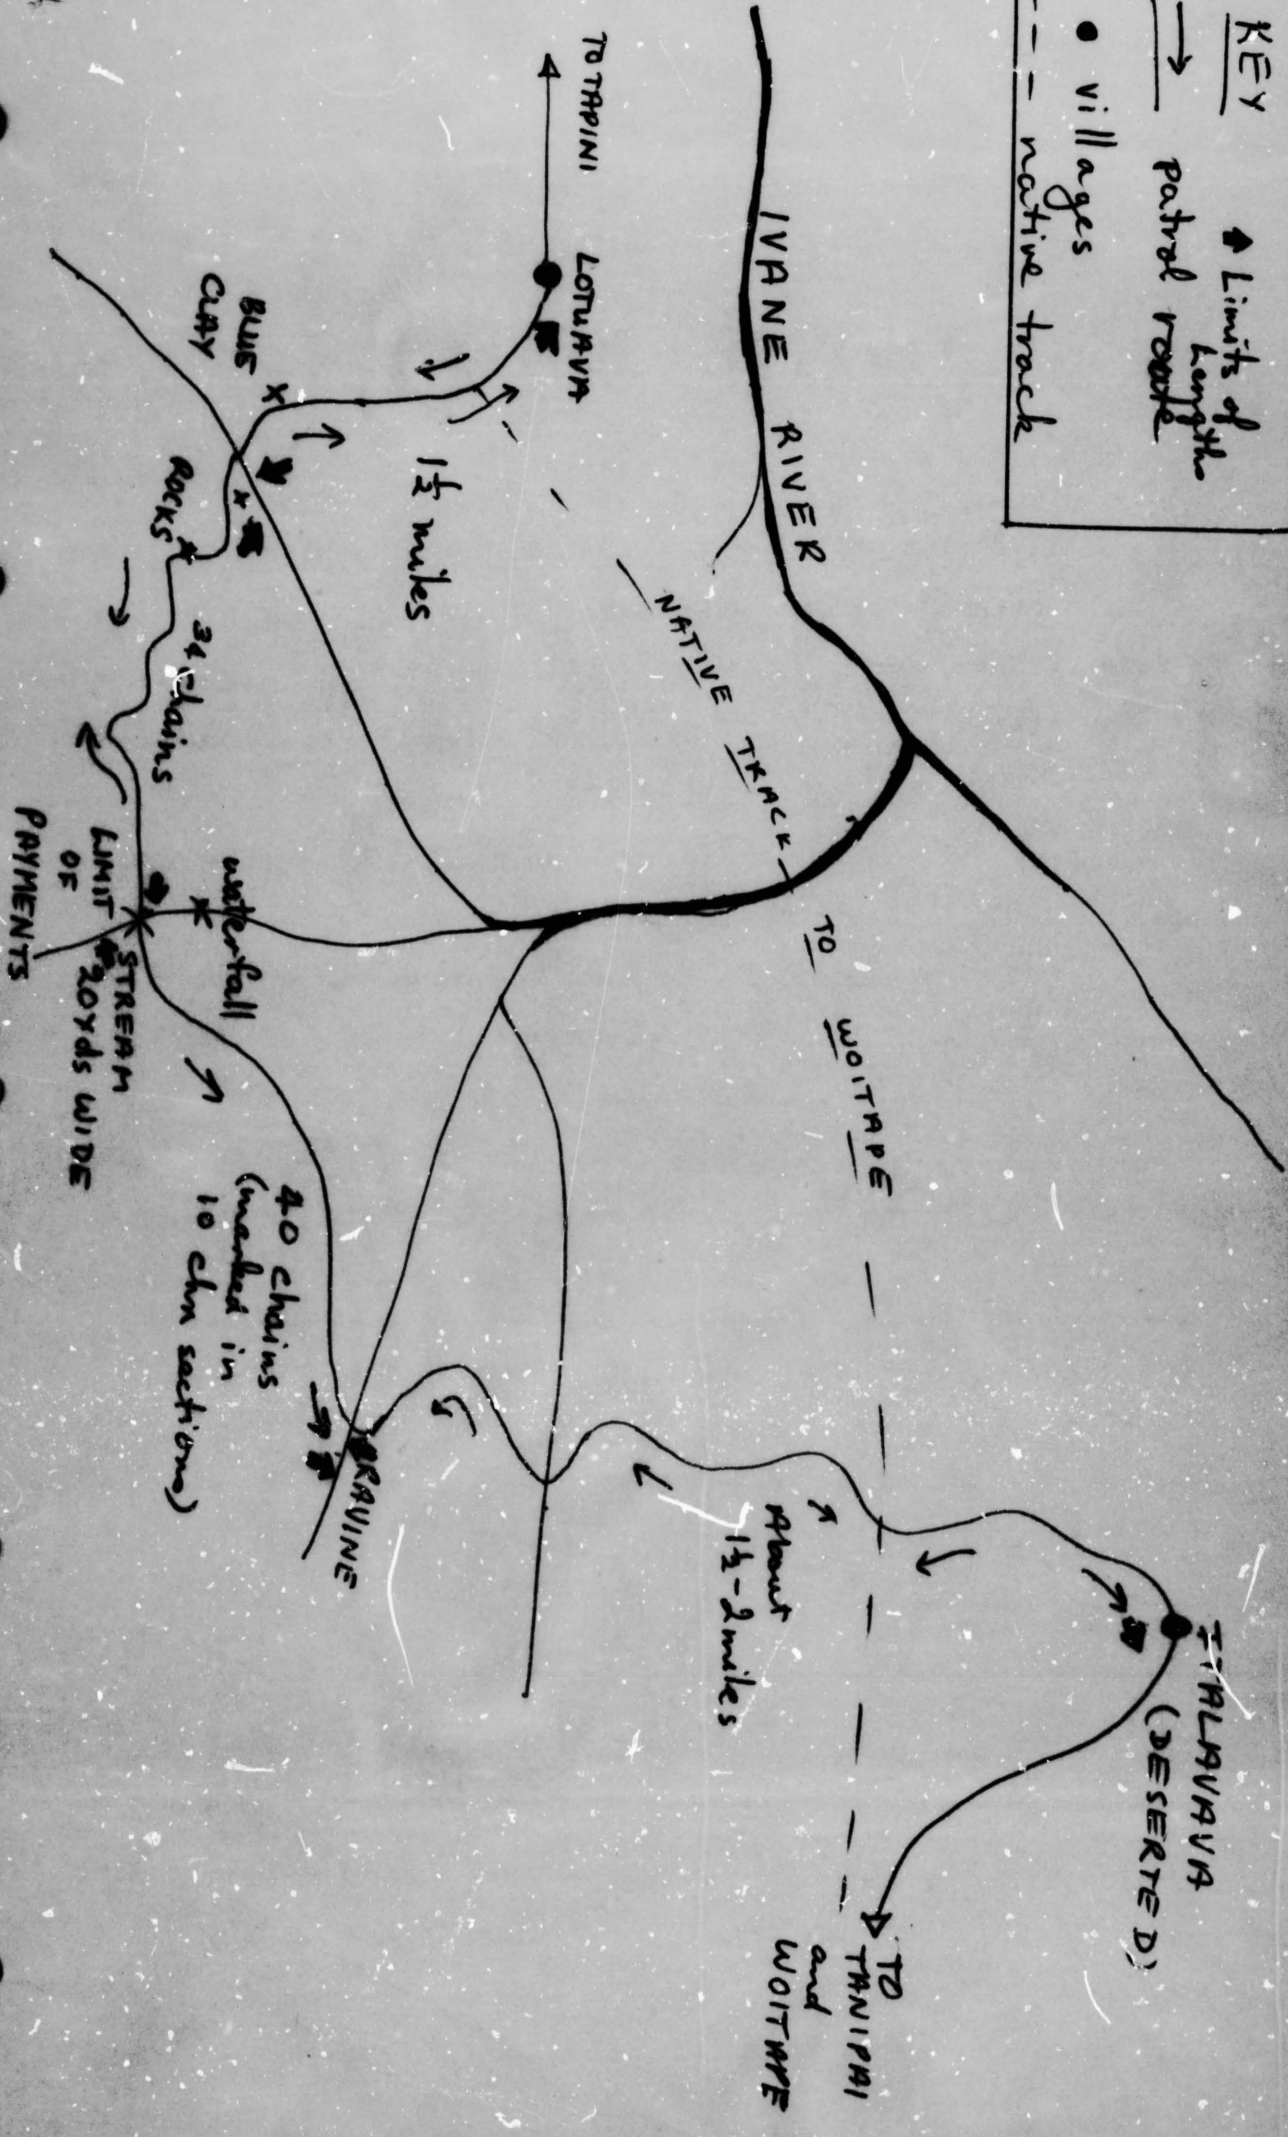 KEY
Limits of
Lengths
patrol route
villages
native track
IVANE RIVER
TO TAPINI
LOTUAVA
BLUE
CLAY
1½ miles
ROCKS
34 chains
NATIVE TRACK
TO WOITAPE
waterfall
LIMIT
OF
PAYMENTS
STREAM
20yds WIDE
40 chains
(marked in
10 chn sections)
RAVINE
About
1½-2miles
ITALAVAVA
(DESERTED)
TO
TANIPAI
and
WOITAPE